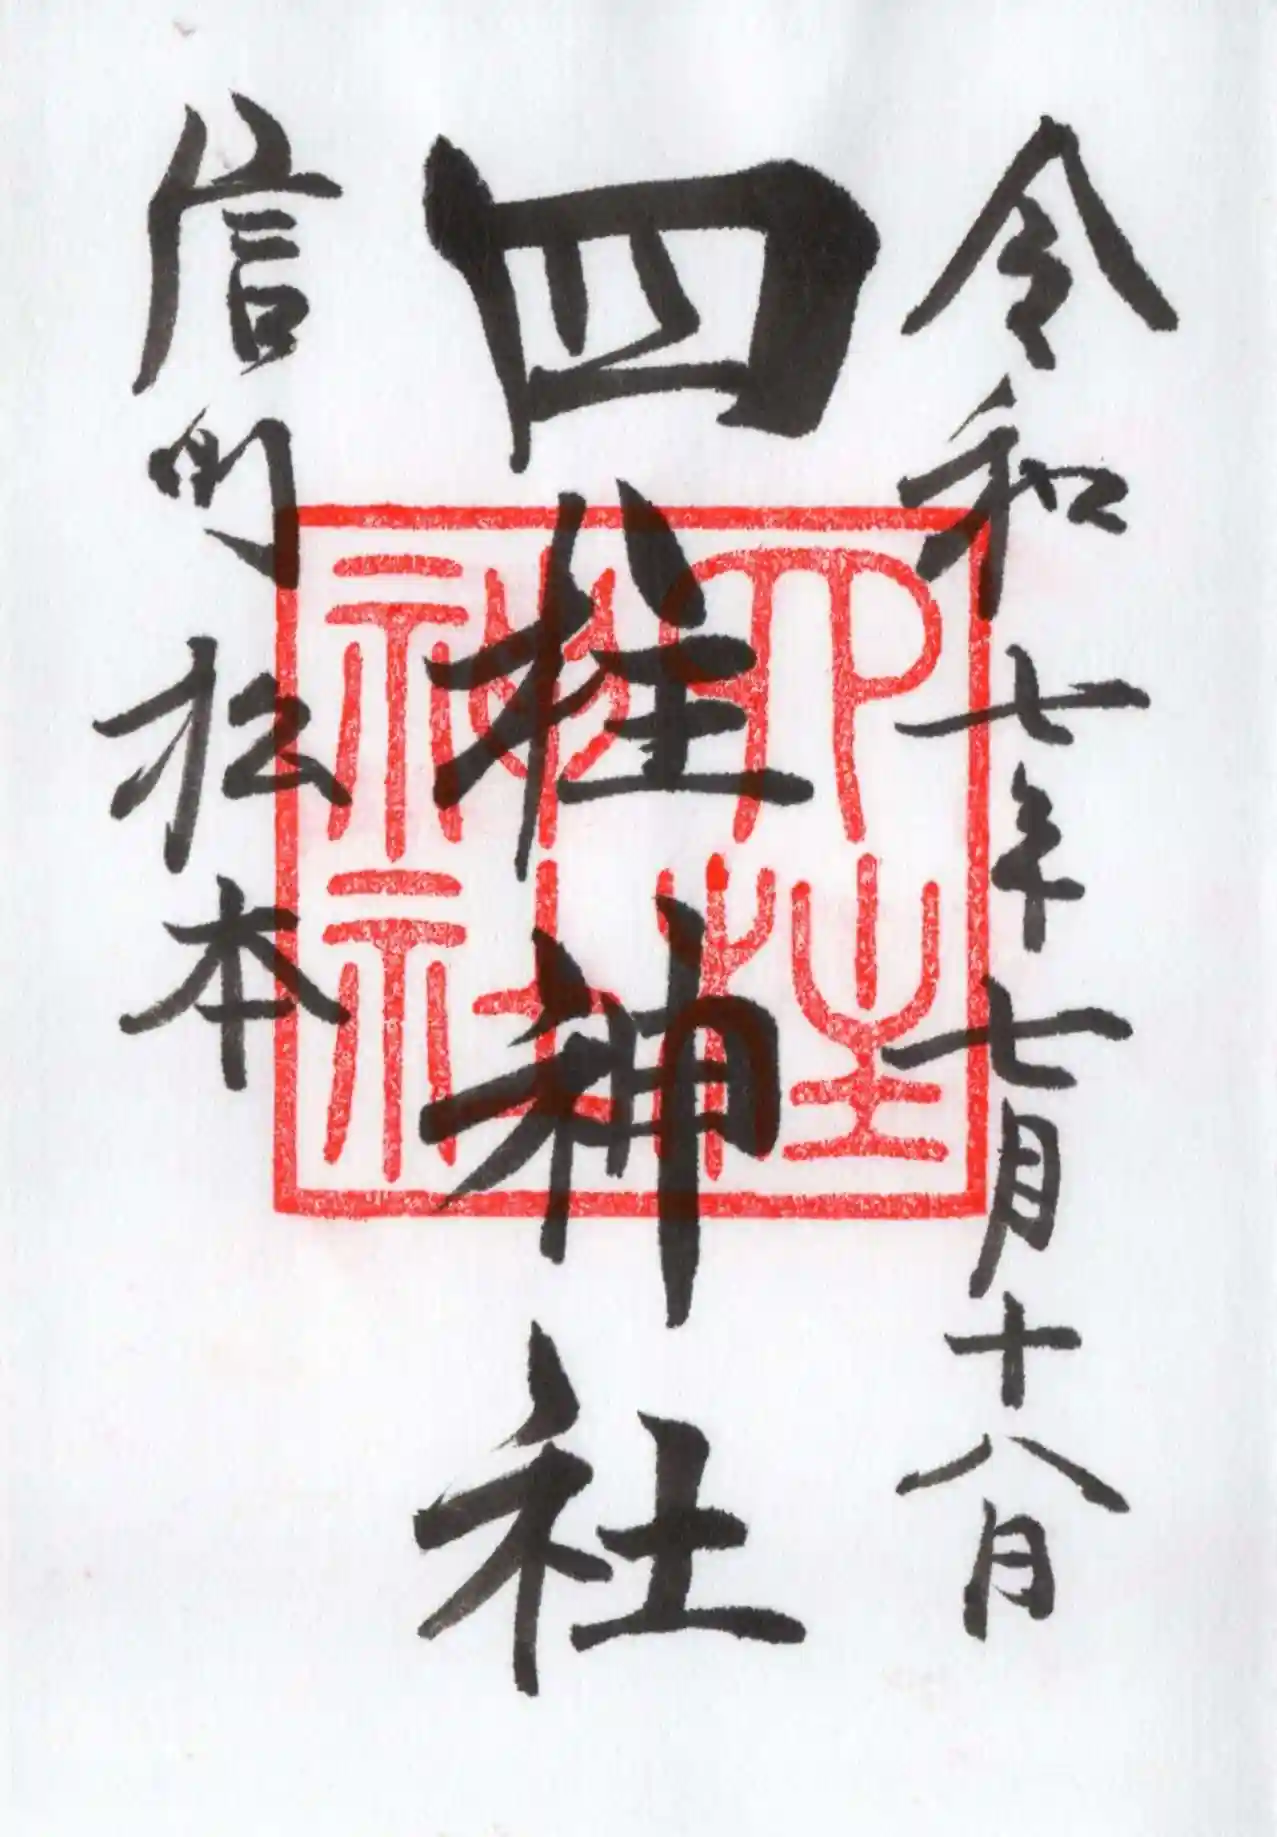 令和七年七月十八日
四柱神社
四柱神社
信州松本